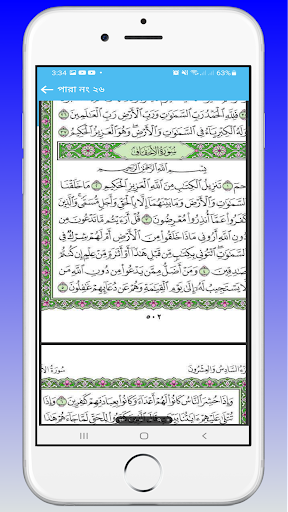 3:34 63%
← পারা নং ২৬
فَلِلَّهِ ٱلْحَمْدُ رَبِّ ٱلسَّمَٰوَٰتِ وَرَبِّ ٱلْأَرْضِ رَبِّ ٱلْعَٰلَمِينَ ٣٦
لَهُ ٱلْكِبْرِيَآءُ فِى ٱلسَّمَٰوَٰتِ وَٱلْأَرْضِ وَهُوَ ٱلْعَزِيزُ ٱلْحَكِيمُ ٣٧
سُورَةُ الأَحْقَافِ
بِسْمِ ٱللَّهِ ٱلرَّحْمَٰنِ ٱلرَّحِيمِ
حمٓ ١ تَنزِيلُ ٱلْكِتَٰبِ مِنَ ٱللَّهِ ٱلْعَزِيزِ ٱلْحَكِيمِ ٢ مَا خَلَقْنَا
ٱلسَّمَٰوَٰتِ وَٱلْأَرْضَ وَمَا بَيْنَهُمَآ إِلَّا بِٱلْحَقِّ وَأَجَلٍ مُّسَمًّى وَٱلَّذِينَ
كَفَرُوا۟ عَمَّآ أُنذِرُوا۟ مُعْرِضُونَ ٣ قُلْ أَرَءَيْتُم مَّا تَدْعُونَ مِن
دُونِ ٱللَّهِ أَرُونِى مَاذَا خَلَقُوا۟ مِنَ ٱلْأَرْضِ أَمْ لَهُمْ شِرْكٌ فِى
ٱلسَّمَٰوَٰتِ ٱئْتُونِى بِكِتَٰبٍ مِّن قَبْلِ هَٰذَآ أَوْ أَثَٰرَةٍ مِّنْ عِلْمٍ إِن
صَٰدِقِينَ ٤ وَمَنْ أَضَلُّ مِمَّن يَدْعُوا۟ مِن دُونِ ٱللَّهِ
يَسْتَجِيبُ لَهُۥٓ إِلَىٰ يَوْمِ ٱلْقِيَٰمَةِ وَهُمْ عَن دُعَآئِهِمْ غَٰفِلُونَ ٥
٥٠٢
السَّادِسُ وَالعِشْرُونَ سُورَةُ
وَإِذَا حُشِرَ ٱلنَّاسُ كَانُوا۟ لَهُمْ أَعْدَآءً وَكَانُوا۟ بِعِبَادَتِهِمْ كَٰفِرِينَ ٦ وَإِذَا
تُتْلَىٰ عَلَيْهِمْ ءَايَٰتُنَا بَيِّنَٰتٍ قَالَ ٱلَّذِينَ كَفَرُوا۟ لِلْحَقِّ لَمَّا جَآءَهُمْ